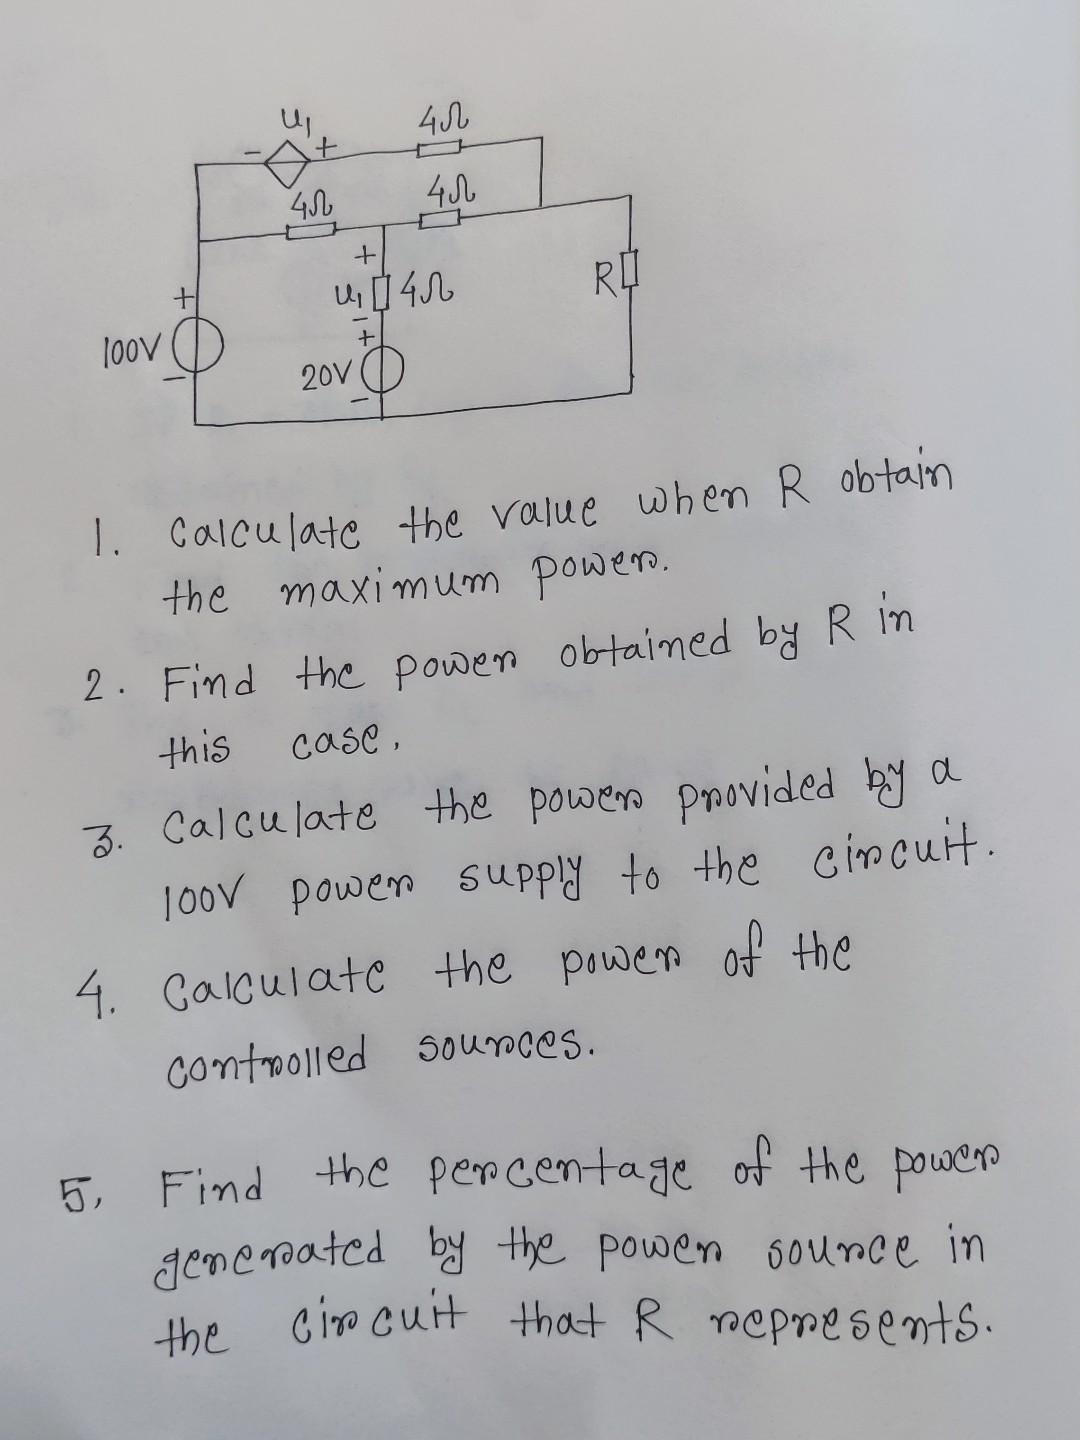 u₁ 4Ω
- +
4Ω 4Ω
+
+ u₁ 4Ω R
-
100V +
- 20V
-
1. Calculate the value when R obtain
the maximum power.
2. Find the power obtained by R in
this case.
3. Calculate the power provided by a
100V power supply to the circuit.
4. Calculate the power of the
controlled sources.
5. Find the percentage of the power
generated by the power source in
the circuit that R represents.